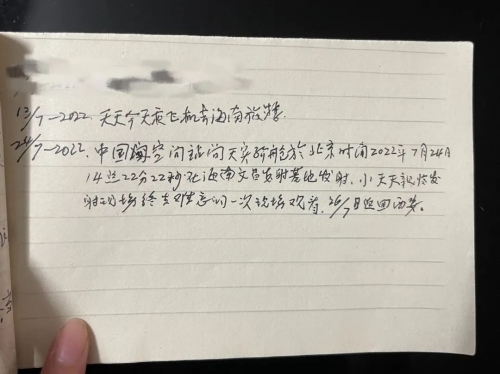 13/7-2022. 天天今天乘飞机去海南旅游.
24/7-2022. 中国空间站问天实验舱於北京时间2022年7月24日
14点22分22秒在海南文昌发射基地发射. 小天天亲临发
射现场终生难忘的一次现场观看. 26/7日返回西安。